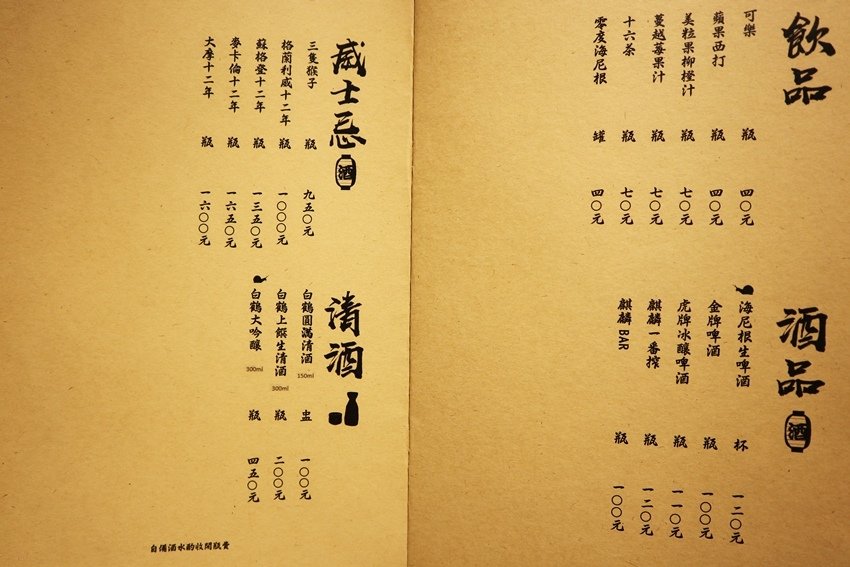 飲品
可樂 瓶 四〇元
蘋果西打 瓶 四〇元
美粒果柳橙汁 瓶 七〇元
蔓越莓果汁 瓶 七〇元
十六茶 瓶 七〇元
零度海尼根 罐 四〇元
酒品
酒
海尼根生啤酒 杯 一二〇元
金牌啤酒 瓶 一〇〇元
虎牌冰釀啤酒 瓶 一一〇元
麒麟一番搾 瓶 一二〇元
麒麟BAR 瓶 一〇〇元
威士忌
酒
三隻猴子 瓶 九五〇元
格蘭利威十二年 瓶 一〇〇〇元
蘇格登十二年 瓶 一三五〇元
麥卡倫十二年 瓶 一六五〇元
大摩十二年 瓶 一六〇〇元
清酒
白鶴圓滿清酒 150ml 盅 一〇〇元
白鶴上撰生清酒 300ml 瓶 二〇〇元
白鶴大吟釀 300ml 瓶 四五〇元
自備酒水酌收開瓶費